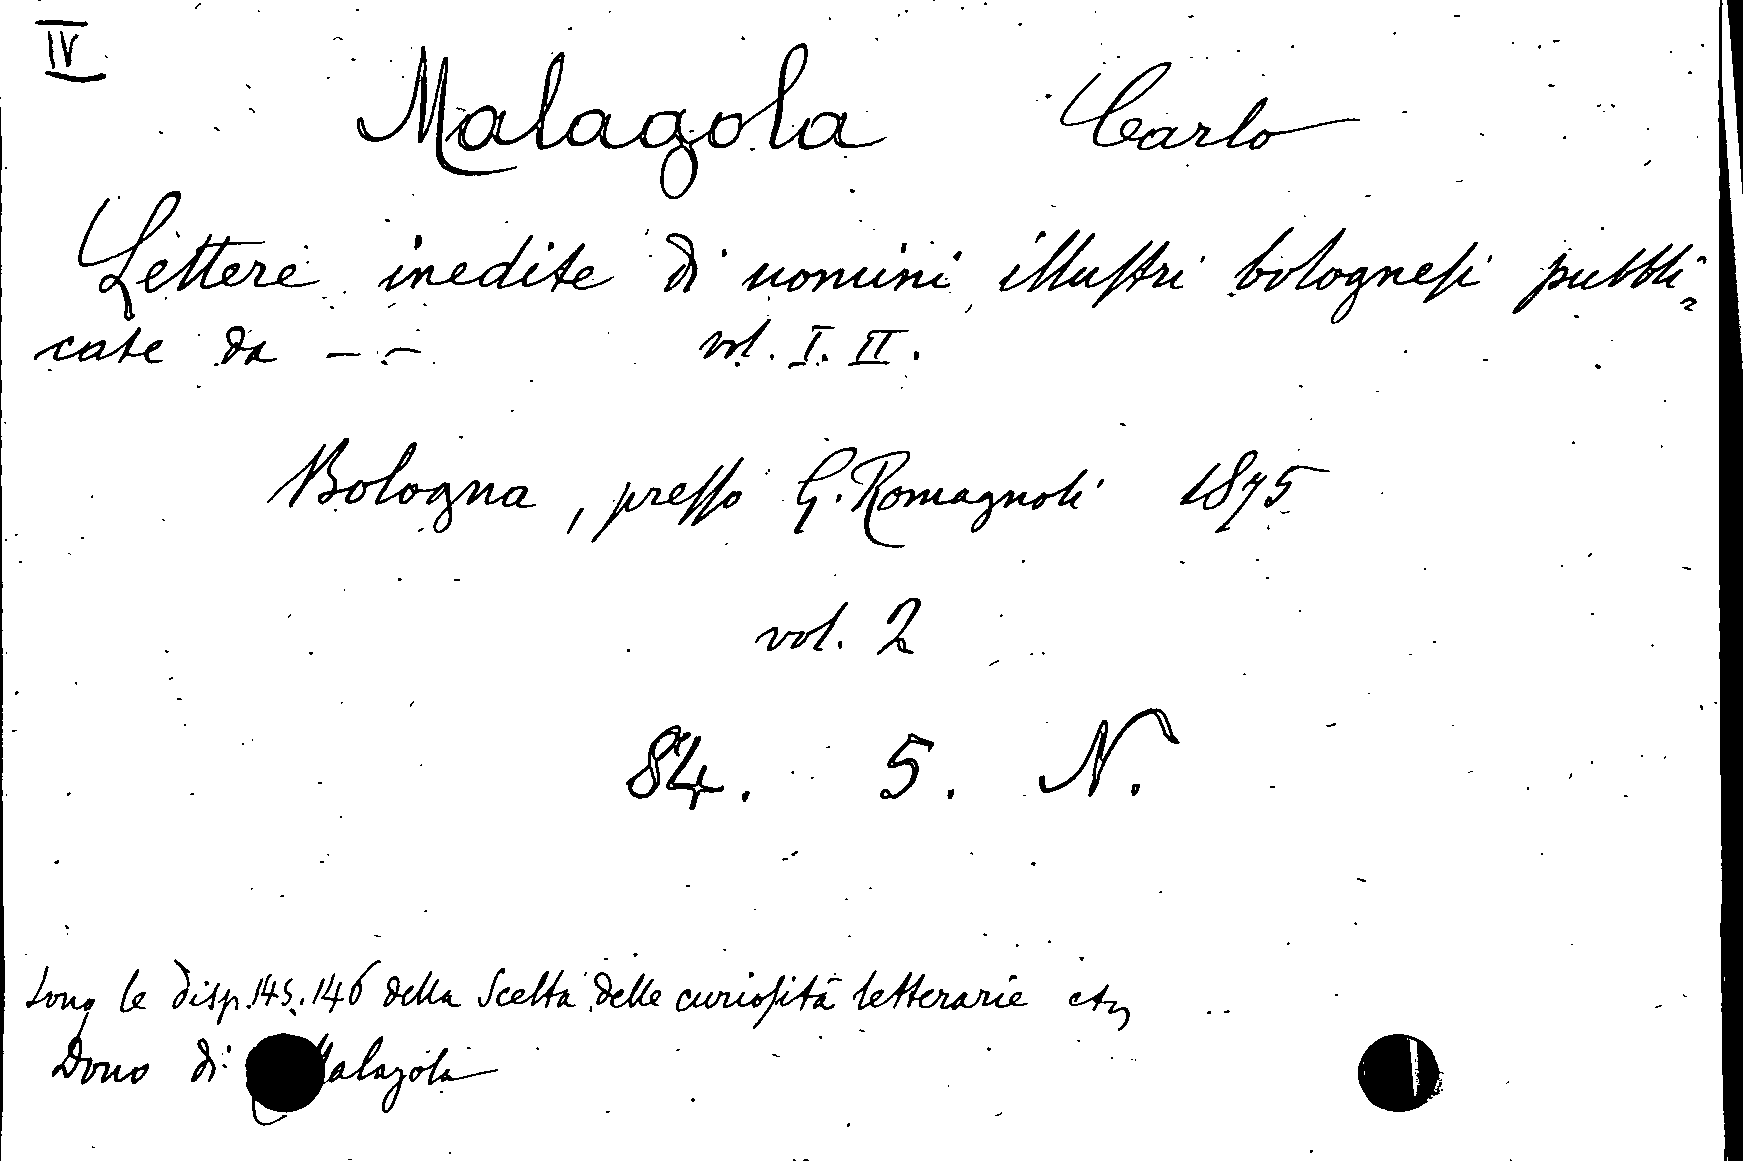 IV
Malagola Carlo
Lettere inedite di uomini illuſtri bologneſi pubbli=
cate da – – vol. I. II.
Bologna, preſſo G. Romagnoli 1875
vol. 2
84. 5. N.
Sono le disp. 145. 146 della Scelta delle curioſità letterarie etc
Dono di Malagola